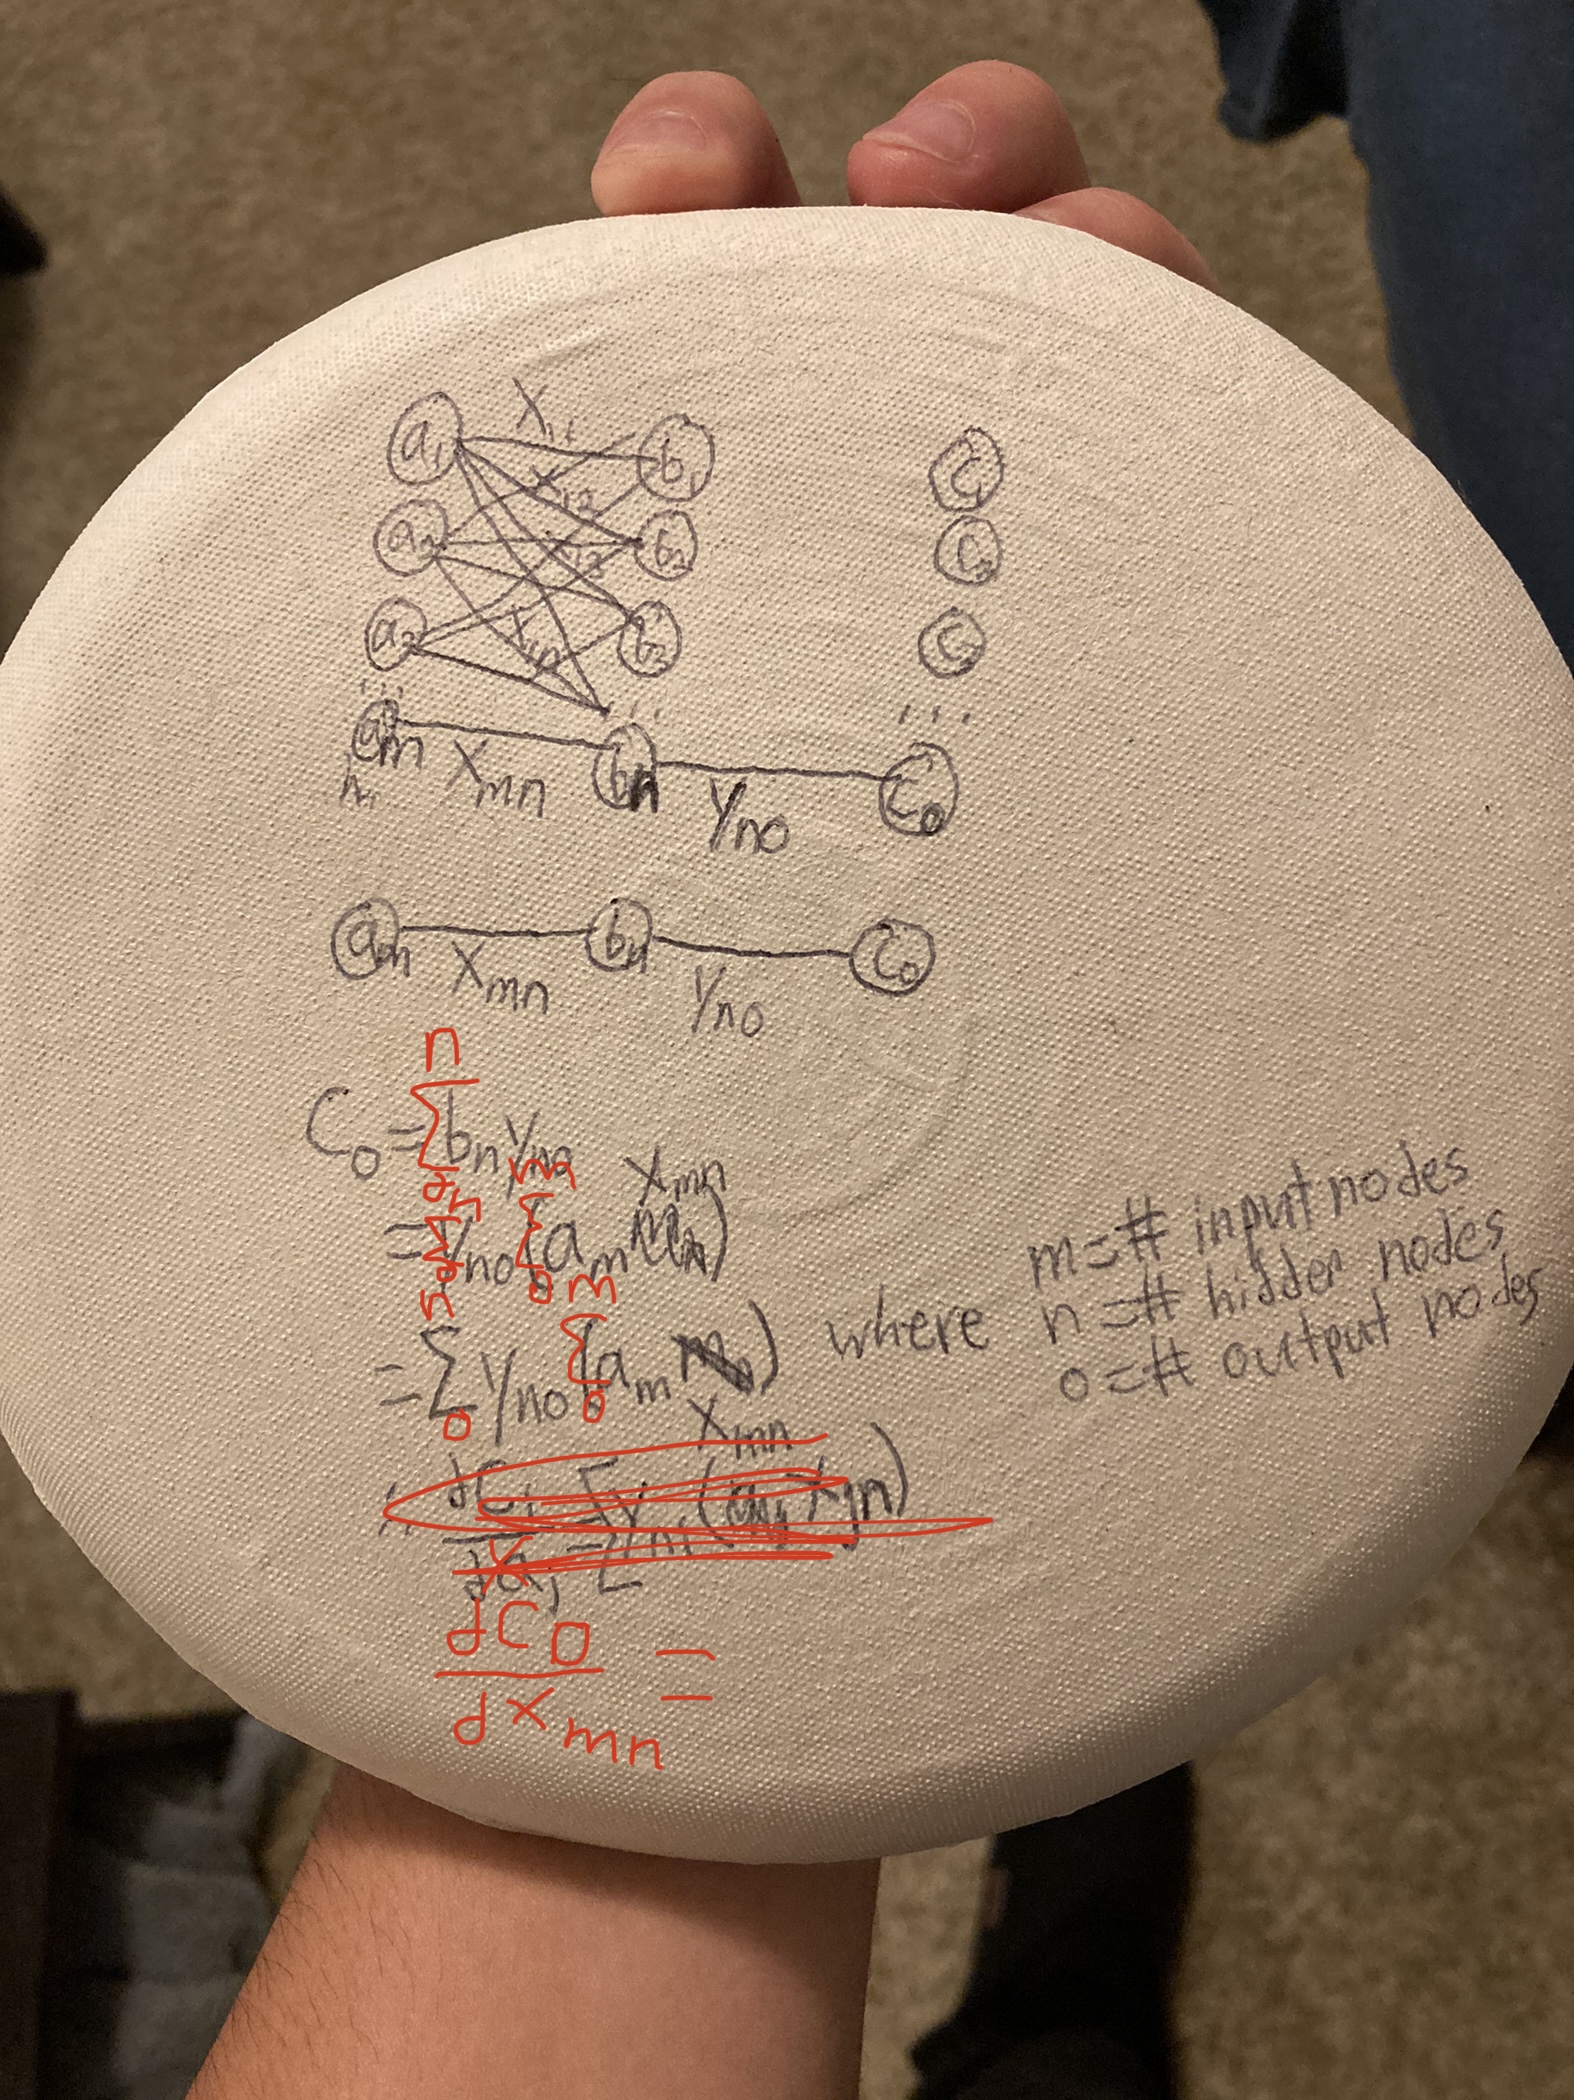 a₁ X₁₁ b₁ C₁
X₁₂
a₂ b₂ C₂
a₃ b₃ C₃
... ... ...
aₘ Xₘₙ bₙ Yₙₒ Cₒ
aₘ Xₘₙ bₙ Yₙₒ Cₒ
n
Cₒ = Σ bₙ Yₙₒ
0
n m Xₘₙ
= Σ Yₙₒ Σ (aₘ)
0 0
n m
= Σ Yₙₒ Σ (aₘ Xₘₙ) where
0 0
m = # input nodes
n = # hidden nodes
o = # output nodes
dCₒ
dXₘₙ =